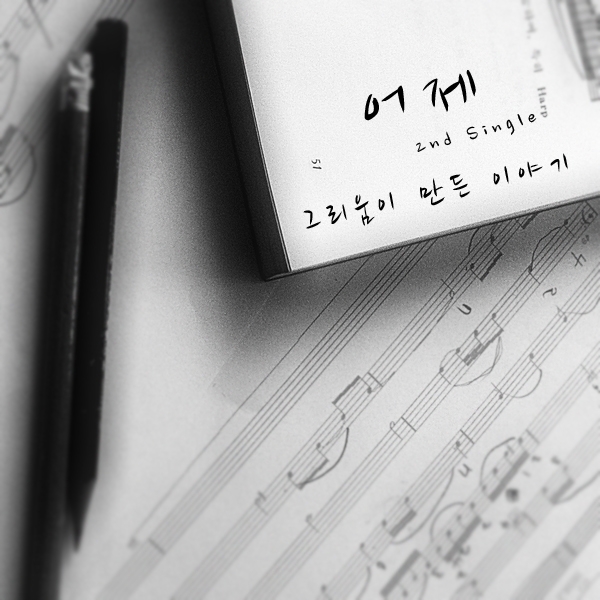 어제
2nd Single
51
그리움이 만든 이야기
Harp